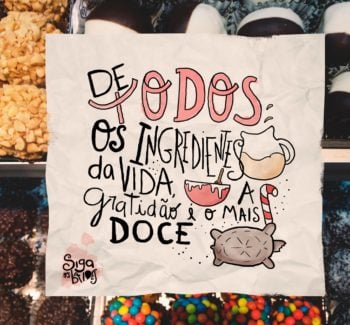 DE TODOS
OS INGREDIENTES
da VIDA, A
gratidão é o MAIS
DOCE
Siga